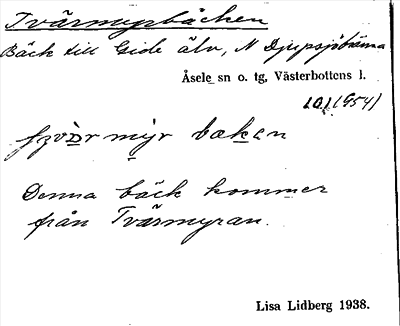 Tvärmyrbäcken
Bäck till Gide älv, N Djupsjöbränna
Åsele sn o. tg, Västerbottens l.
Denna bäck kommer
från Tvärmyran.
Lisa Lidberg 1938.